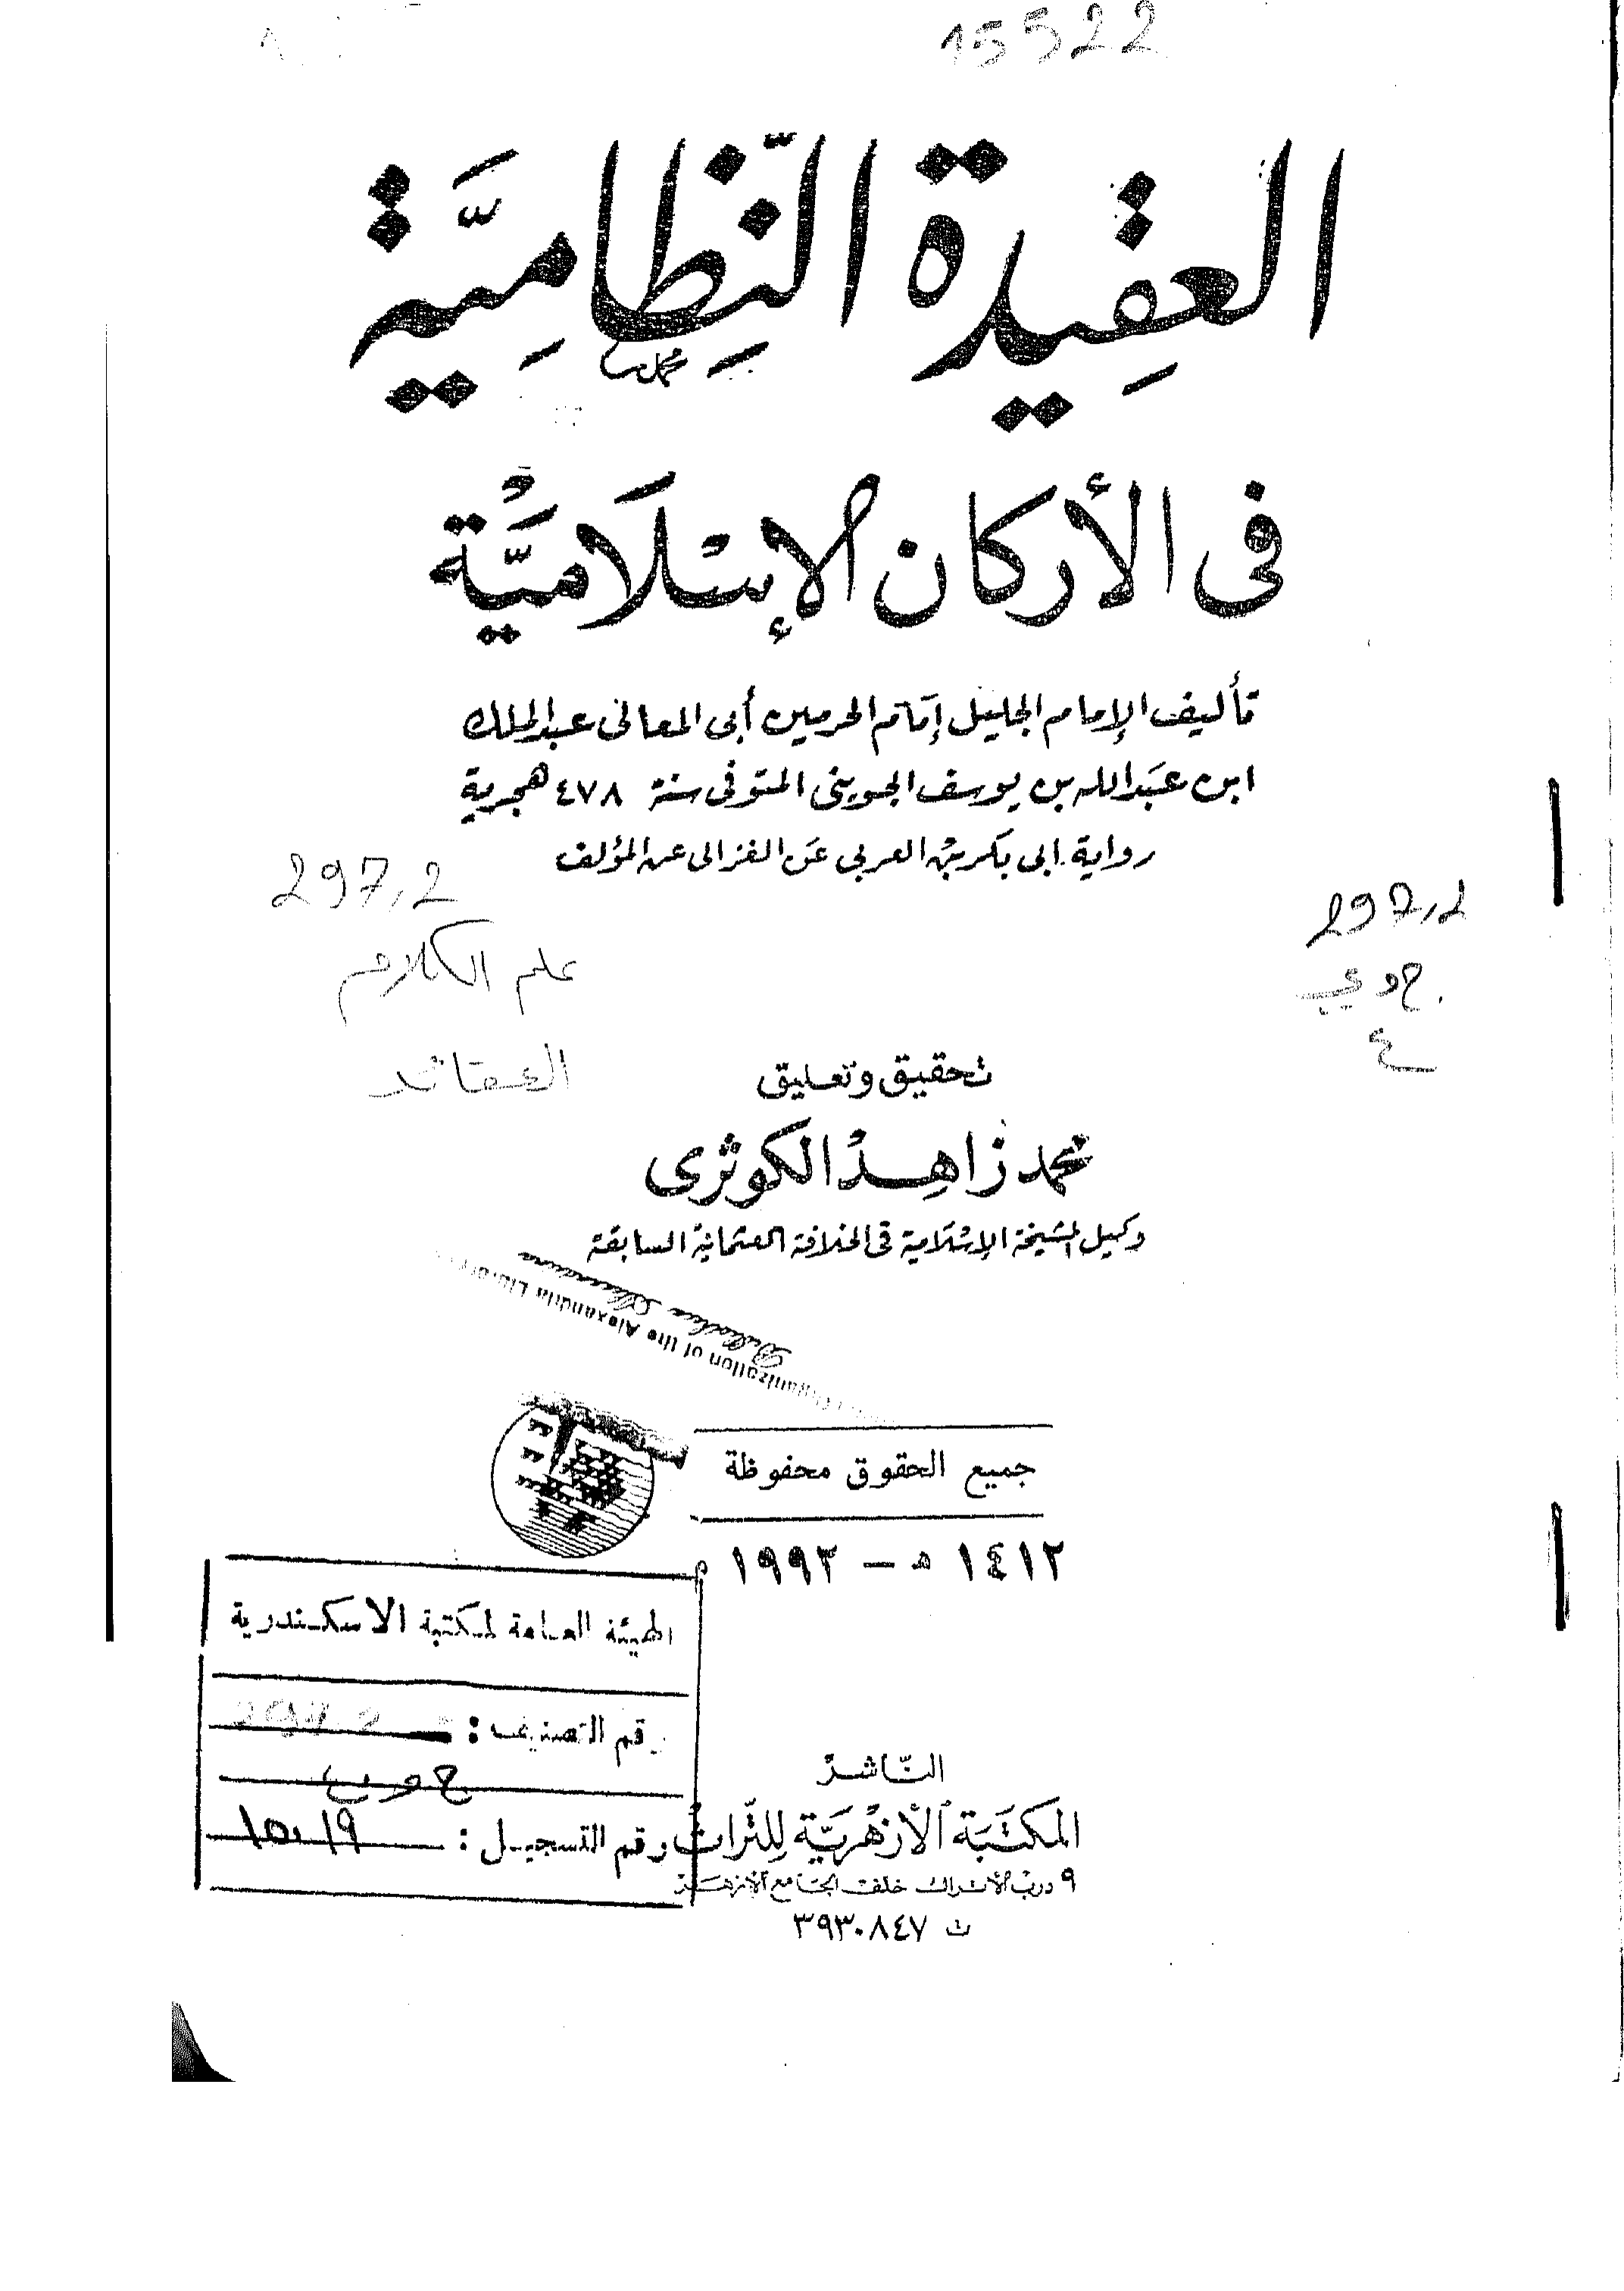 15522
العقيدة النّظاميَّة
محمد
فى الأركان الإسلاميَّة
تأليف الإمام الجليل إمام الحرمين أبى المعالى عبد الملك
ابن عبد الله بن يوسف الجوينى المتوفى سنة ٤٧٨ هجرية
رواية ابى بكر بن العربى عن الغزالى عن المؤلف
297,2
علم الكلام
العقائد
297,2
ج و ي
ع
تحقيق وتعليق
محمد زاهد الكوثرى
وكيل المشيخة الإسلامية فى الخلافة العثمانية السابقة
Organization of the Alexandria Library
جميع الحقوق محفوظة
١٤١٢ هـ – ١٩٩٢ م
الهيئة العامة لمكتبة الاسكندرية
رقم التصنيف : 297.2
ج و ي ع
رقم التسجيل : ١٥٠١٩
النّاشر
المكتبة الأزهريَّة للتّراث
٩ درب الأتراك خلف الجامع الأزهر
ت ٣٩٣٠٨٤٧